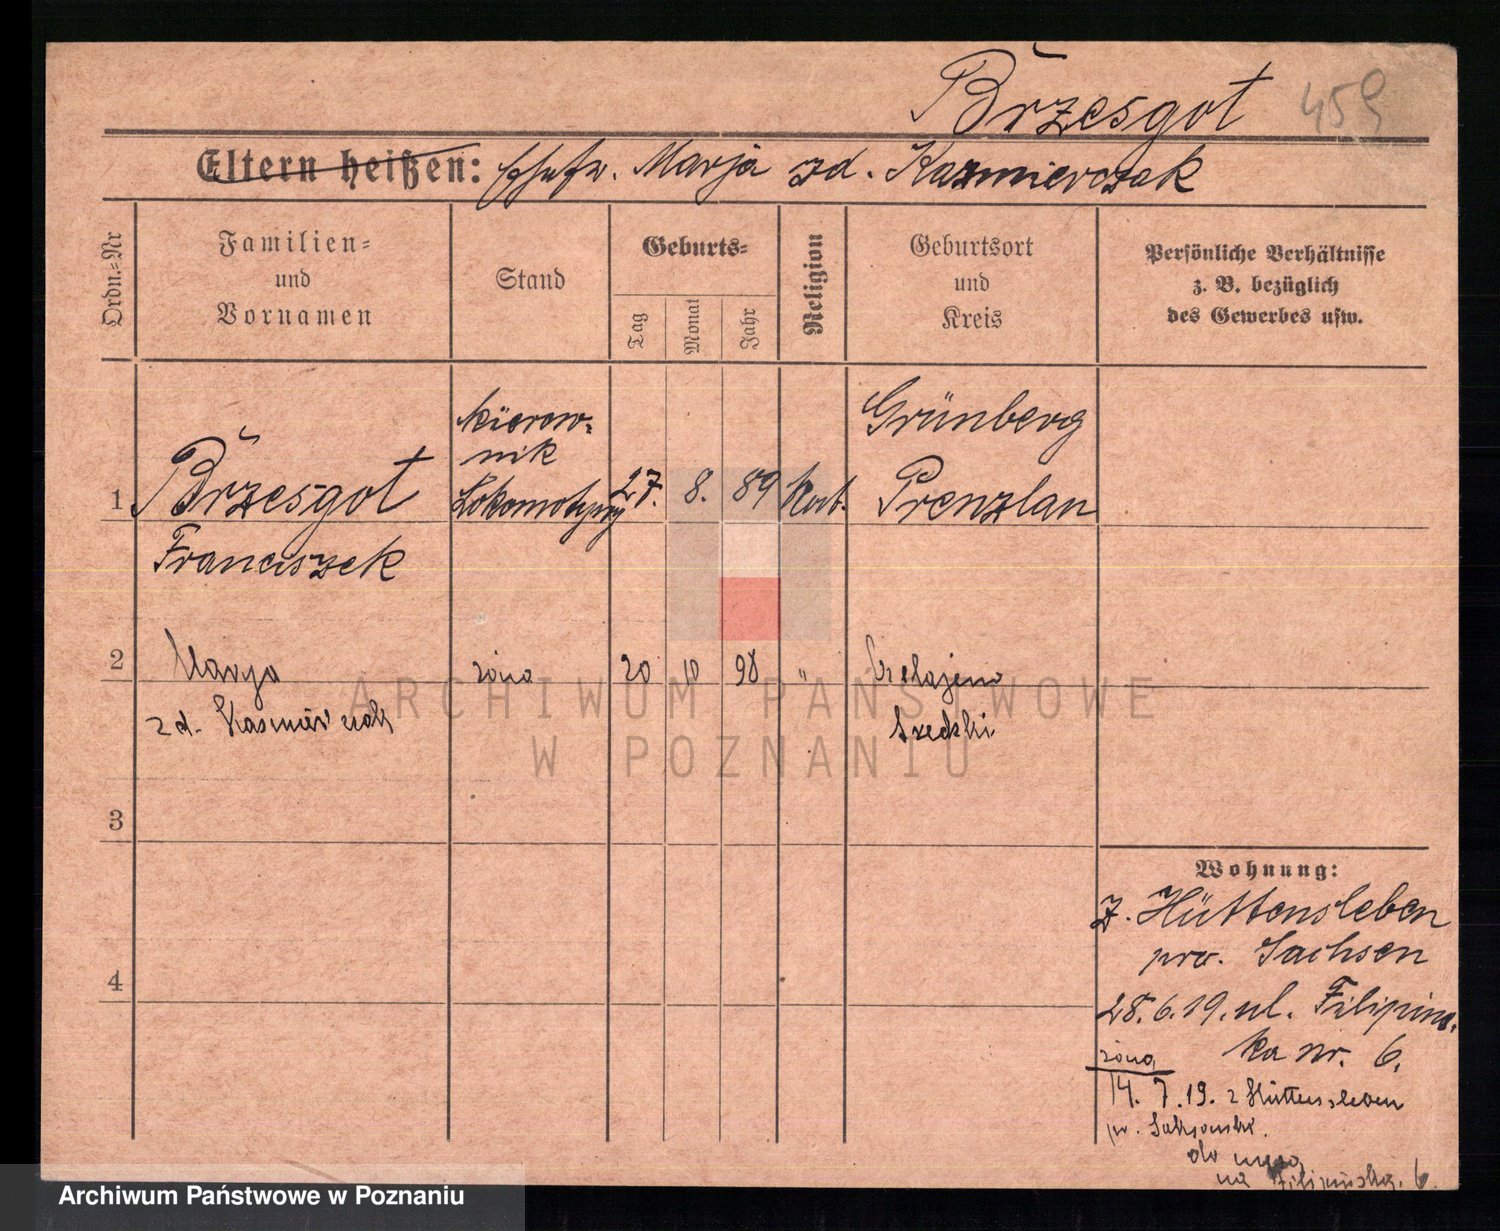 Brzesgot 459
Eltern heißen: Ehefr. Marja zd. Kazmierczak
Ordn.=Nr
Familien=
und
Vornamen
Stand
Geburts=
Tag
Monat
Jahr
Religion
Geburtsort
und
Kreis
Persönliche Verhältnisse
z. B. bezüglich
des Gewerbes usw.
1 Brzesgot kierow-
nik
Lokomotywy 27. 8. 89 Kat. Grünberg
Prenzlau
Franciszek
2 Marja żona 20 10 98 "
zd. Kaźmierczak średzki
3
4
Wohnung:
z. Hüttensleben
prv. Sachsen
28.6.19. ul. Filipiń-
ka nr. 6.
żona
14. 7.19. z Hüttensleben
pr. Saksonski.
do męża
na Filipińską. 6.
ARCHIWUM PAŃSTWOWE
W POZNANIU
Archiwum Państwowe w Poznaniu